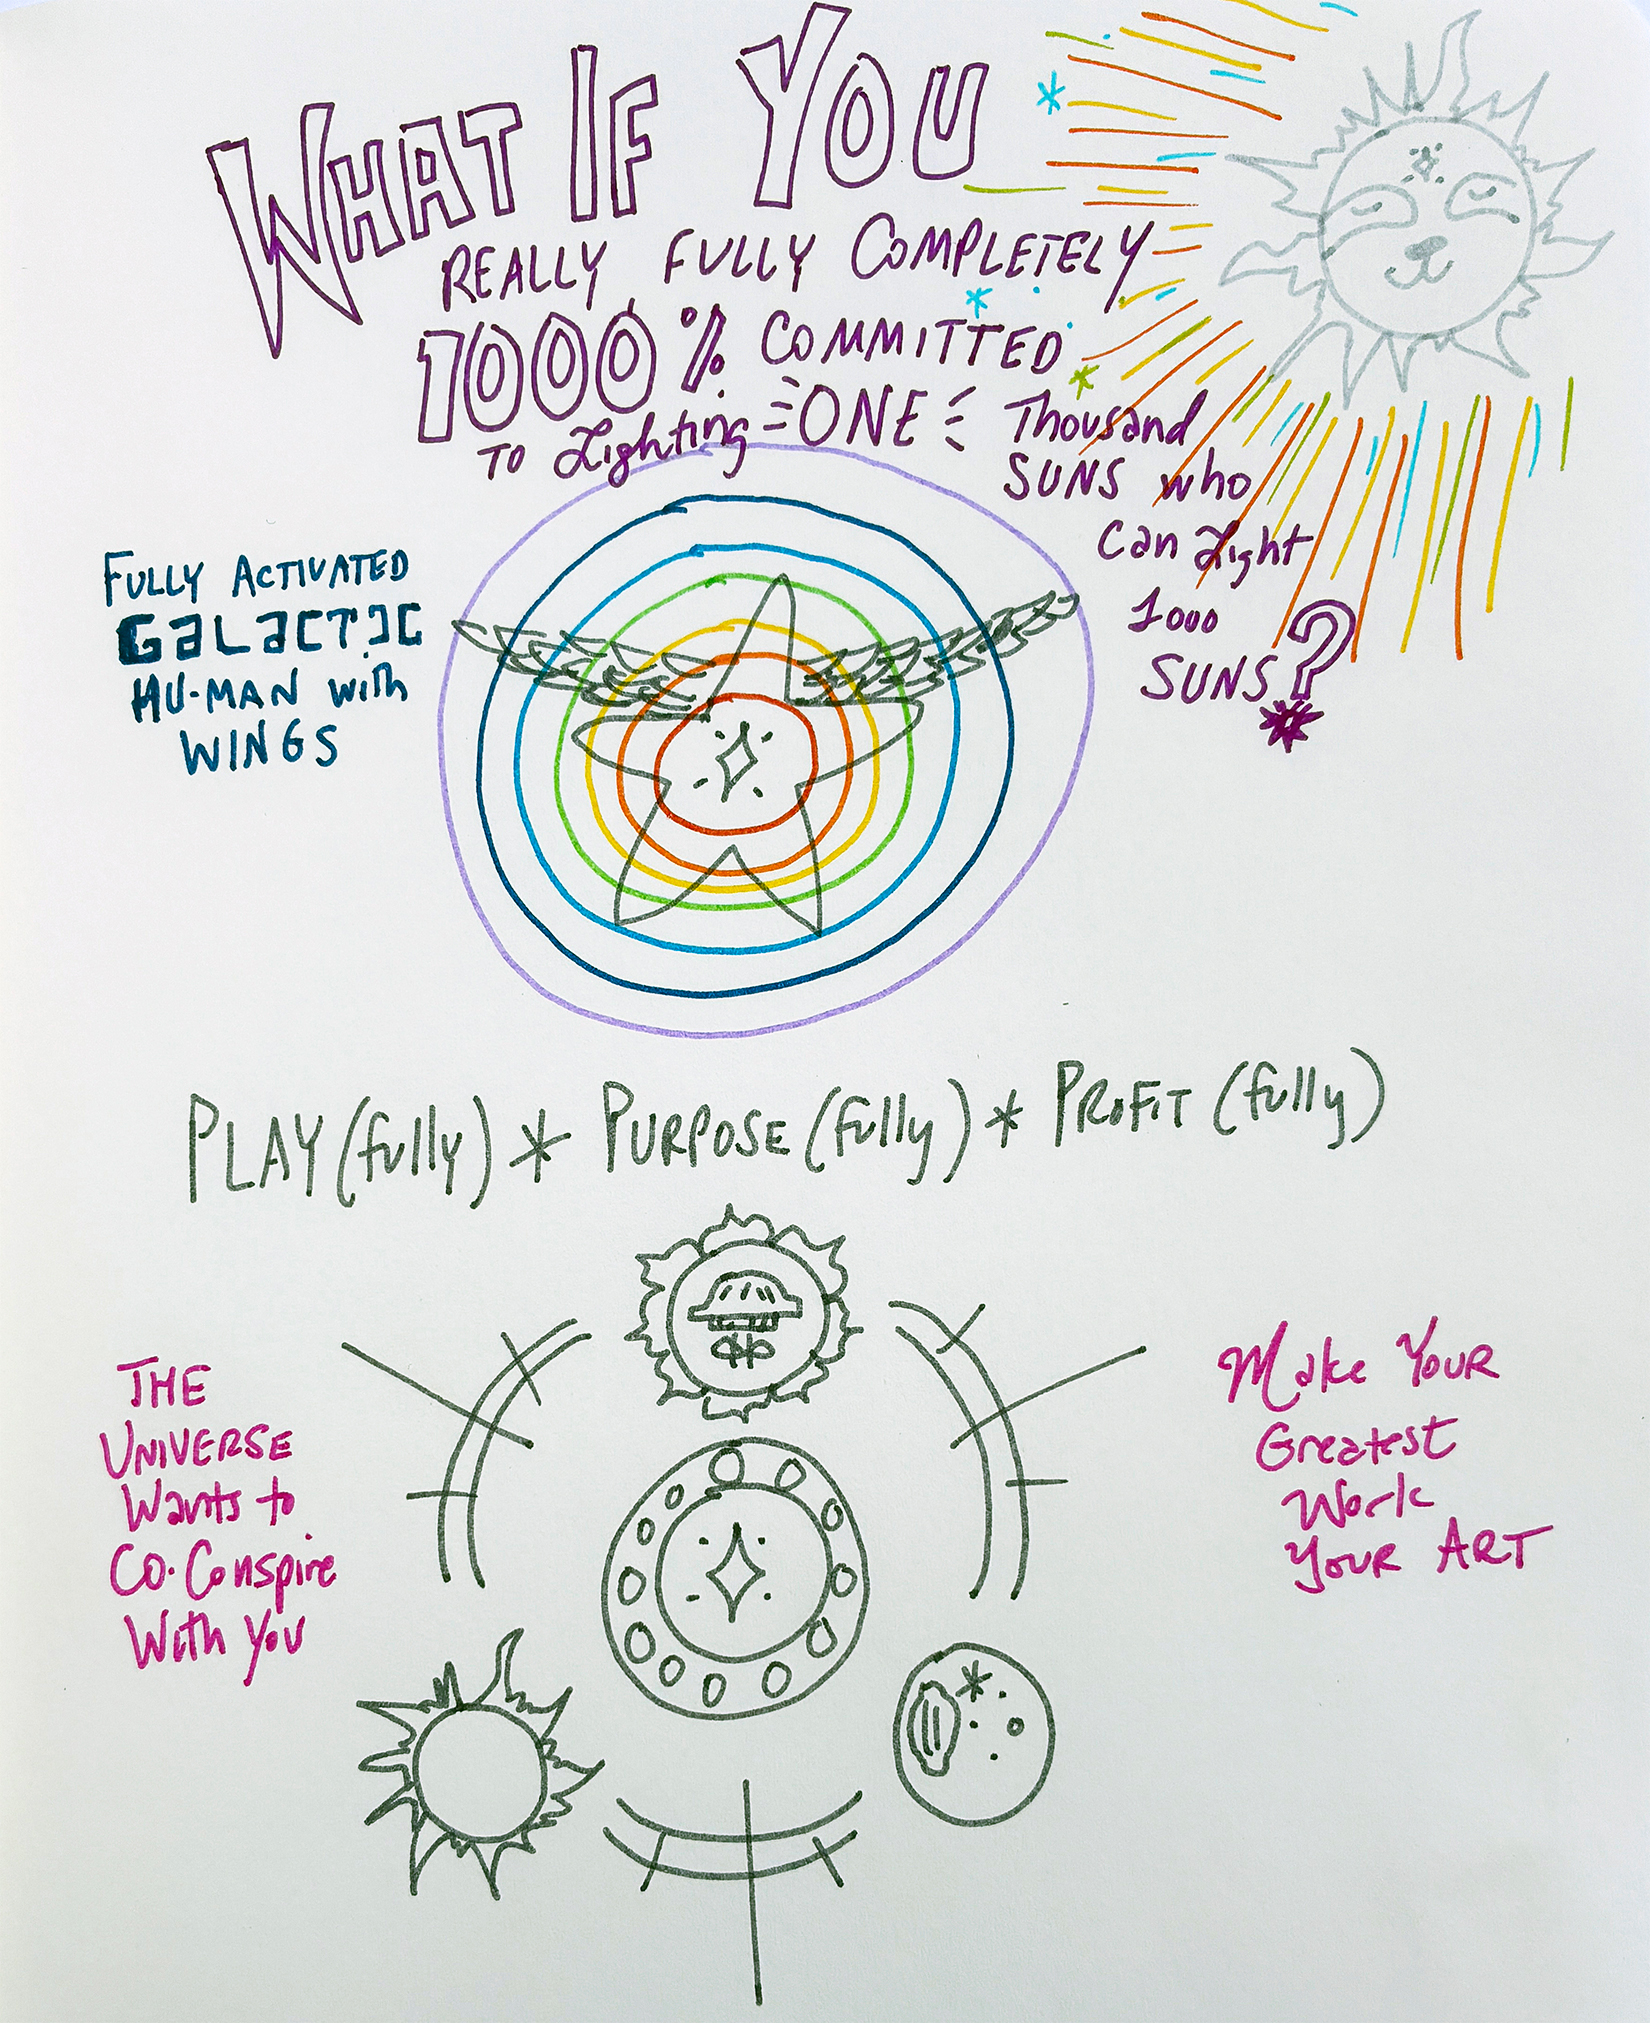 WHAT IF YOU
REALLY FULLY COMPLETELY
1000% COMMITTED
TO Lighting ONE Thousand
SUNS who
Can Light
1000
SUNS?
FULLY ACTIVATED
GALACTIC
HU-MAN with
WINGS
PLAY (fully) * PURPOSE (fully) * PROFIT (fully)
THE
UNIVERSE
Wants to
CO-Conspire
With You
Make YOUR
Greatest
Work
YOUR ART